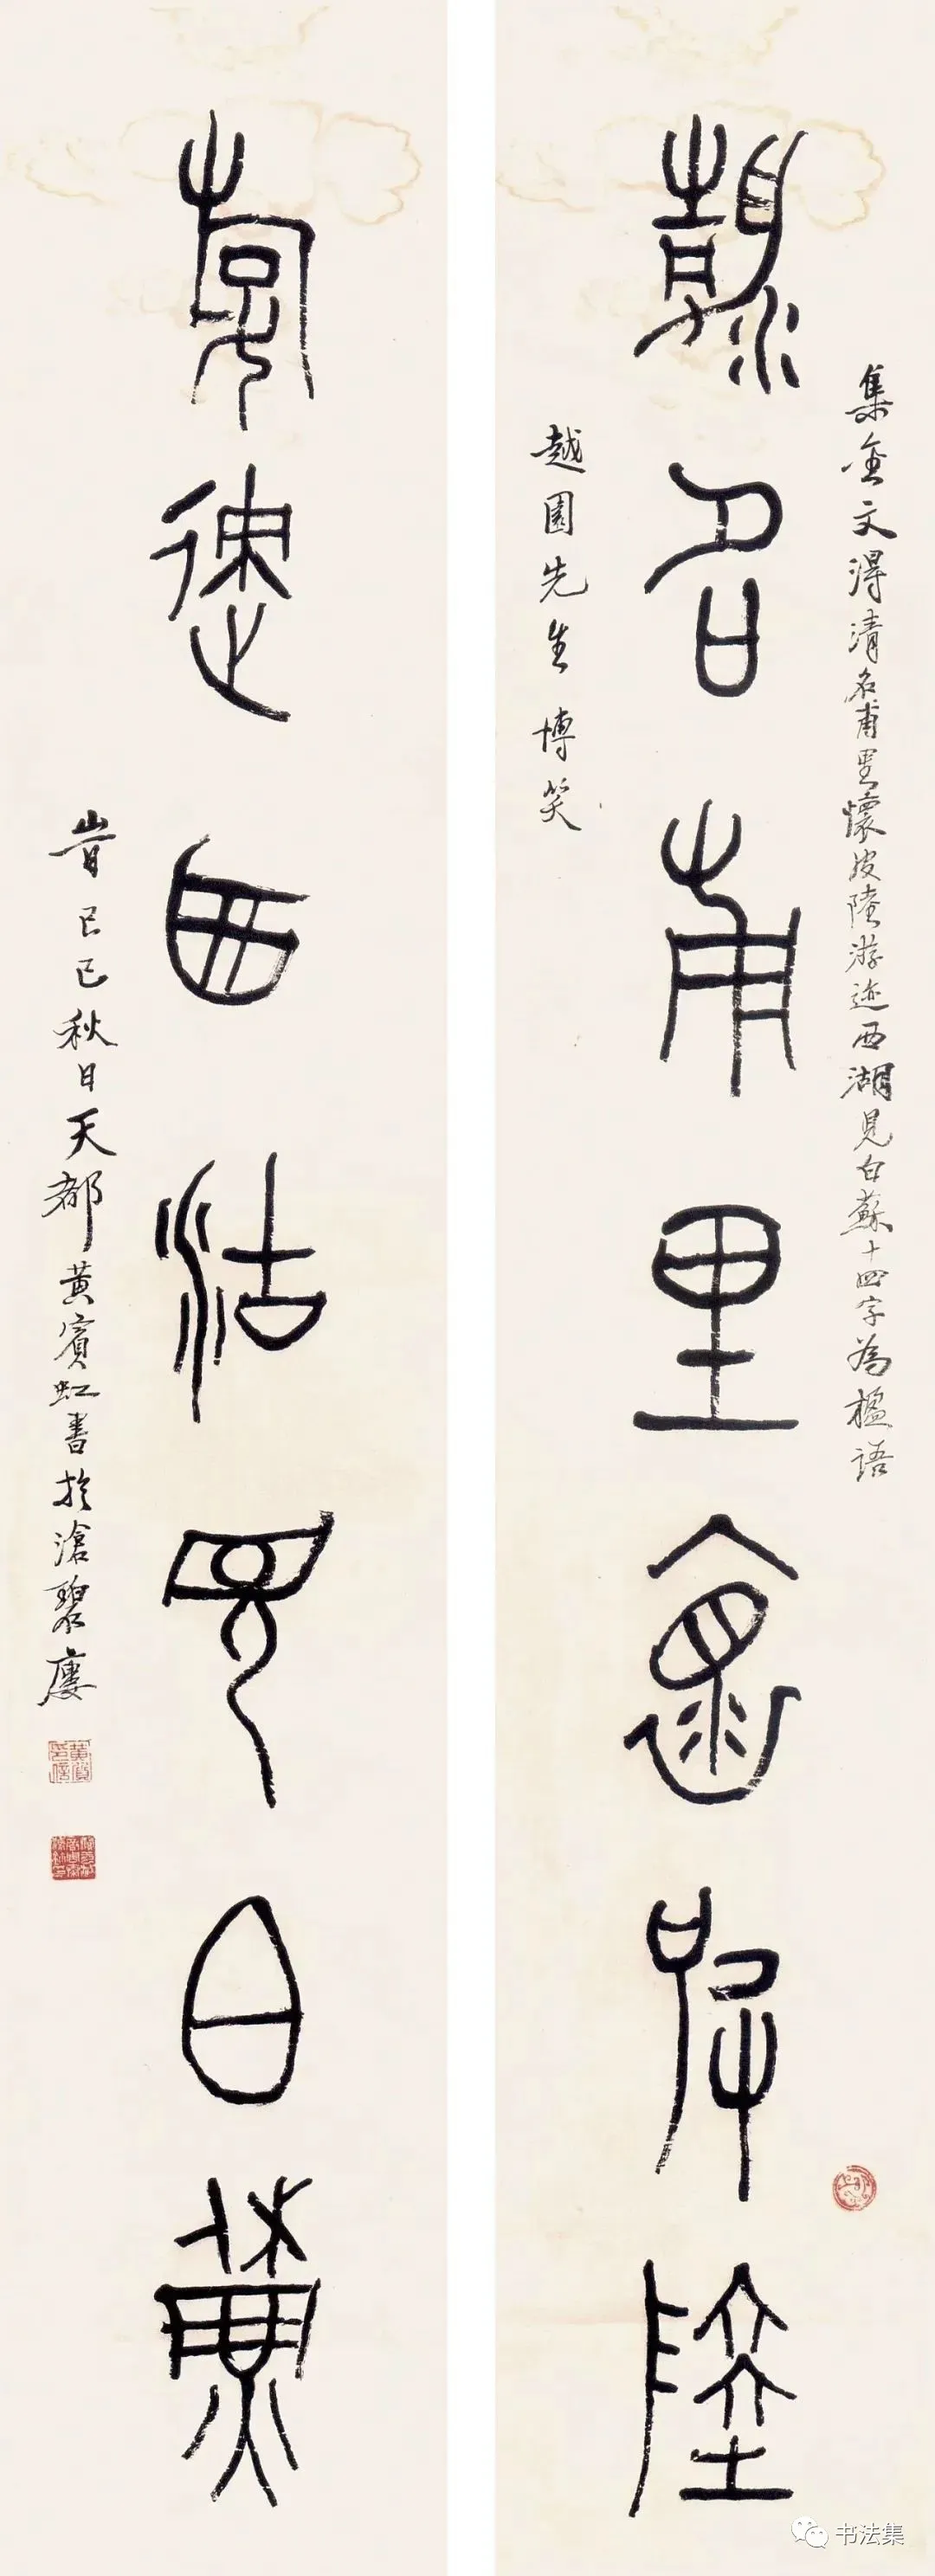 集金文得清名甫里懷皮陸游迹西湖見白蘇十四字為楹語
清名甫里懷皮陸
越園先生博笑
游迹西湖見白蘇
旹己巳秋日天都黃賓虹書於滄碧廔
书法集